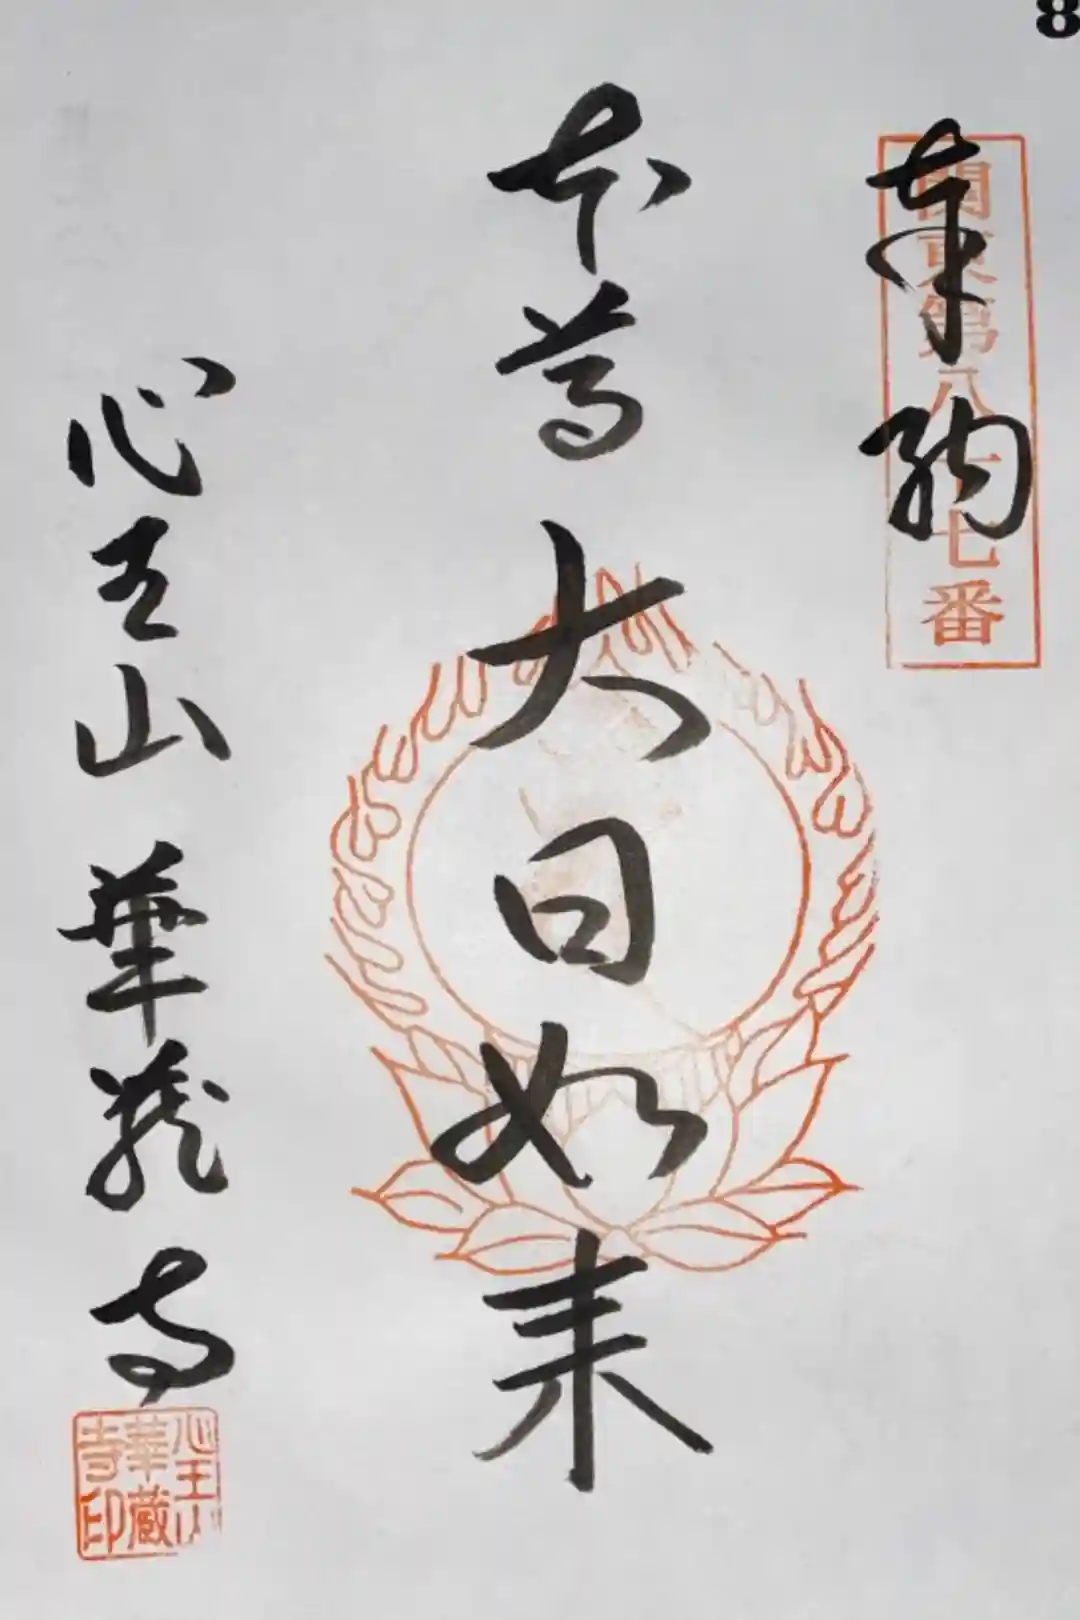 8
奉納
関東第八十七番
本尊 大日如来
心王山 華蔵寺
心王山
華蔵
寺印